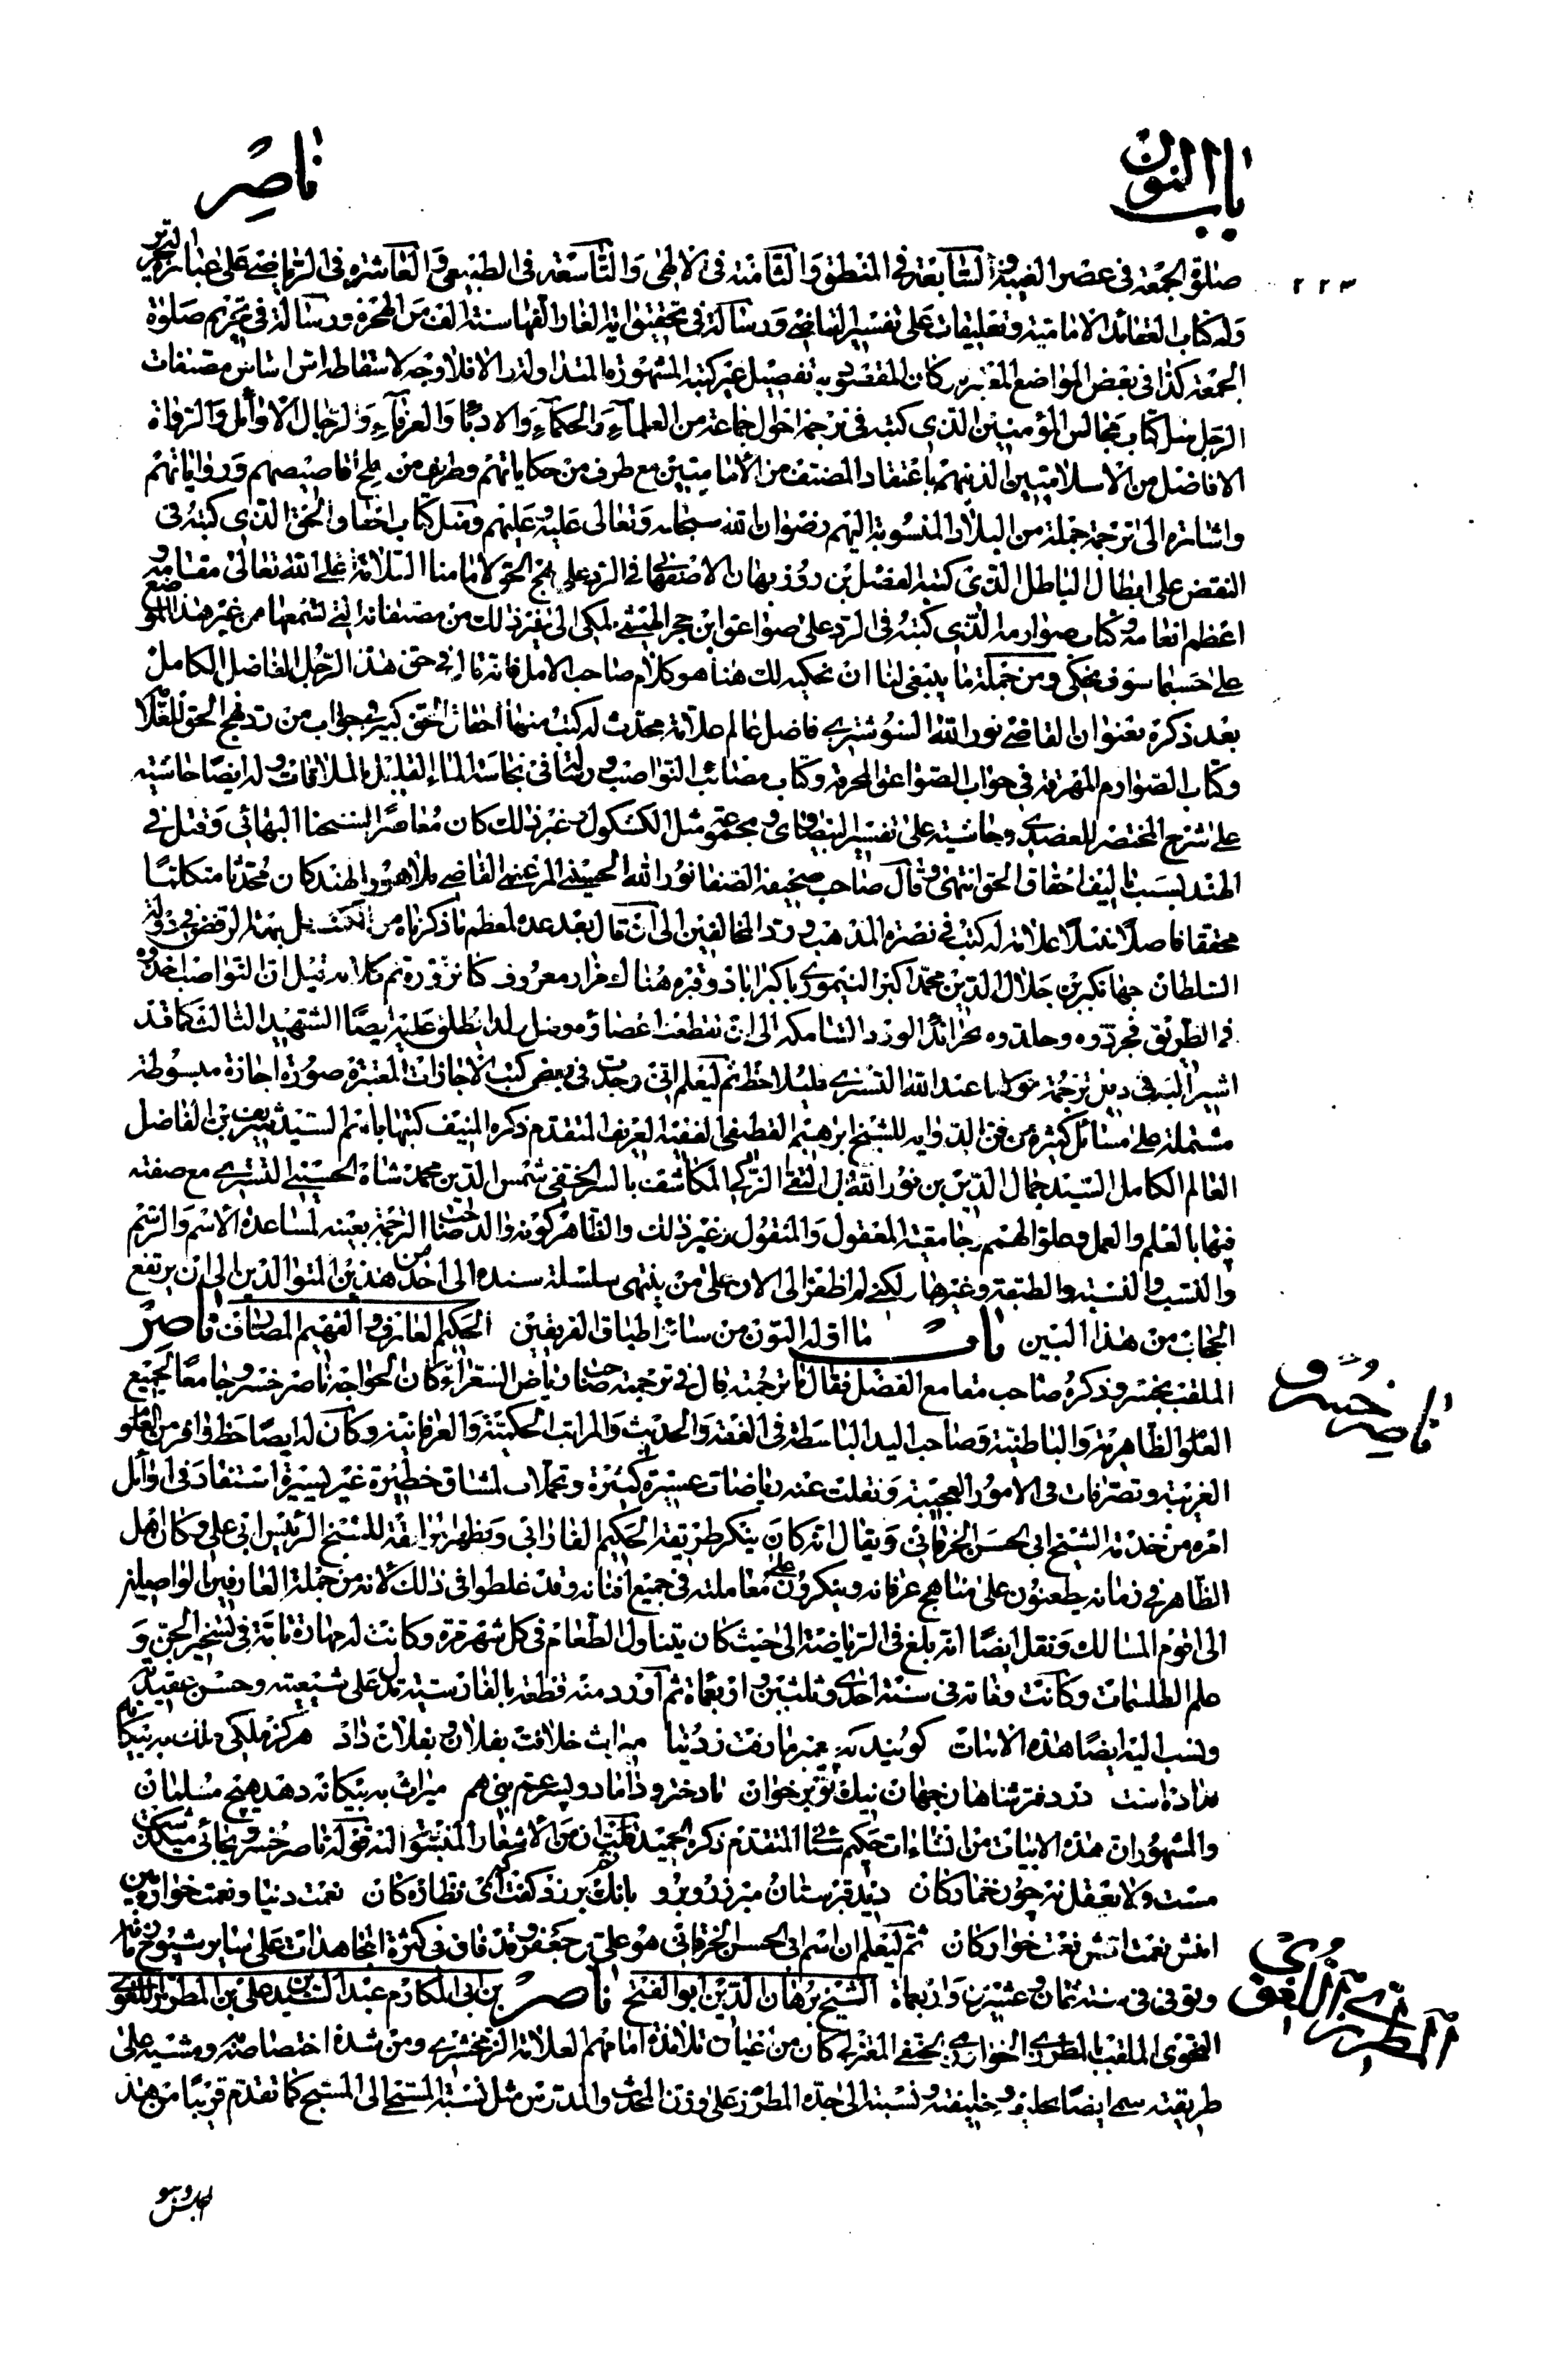 باب النون
ناصر
٢٢٣
صلوة الجمعة في عصر الغيبة والسابعة في المنطق والثامنة في الالهى والتاسعة في الطبيعى والعاشرة في الرياضى على عبارة التحرير
وله كتاب العقائد الامامية وتعليقات على تفسير القاضى ورسالة في تحقيق اية الغار الفها سنة الف من الهجرة ورسالة في تحريم صلوة
الجمعة كذا في بعض المواضع المعتبرة وكان المقصود به تفصيل غير كتبه المشهورة المتداولة والا فلا وجه لاسقاطه اس اساس مصنفات
الرجل مثل كتاب مجالس المؤمنين الذى كتبه في ترجمة احوال جماعة من العلماء والحكماء والادباء والعرفاء والرجال الاوائل والرواة
الافاضل من الاسلاميين الذينهم باعتقاد المصنف من الاماميين مع طرف من حكاياتهم وطريف من ملح اقاصيصهم ورواياتهم
واشارة الى ترجمة جملة من البلاد المنسوبة اليهم رضوان الله سبحانه وتعالى عليه وعليهم ومثل كتاب احقاق الحق الذى كتبه في
النقض على ابطال الباطل الذى كتبه الفضل بن روزبهان الاصفهانى في الرد على نهج الحق لامامنا العلامة اعلى الله تعالى مقامه و
اعظم انعامه وكتاب صوارمه الذى كتبه في الرد على صواعق ابن حجر الهيثمى المكى الى غير ذلك من مصنفاته التى تسمعها من غير هذا الموضع
على حسبما سوف يحكى ومن جملة ما ينبغى لنا ان نحكيه لك هنا هو كلام صاحب الامل فانه قال في حق هذا الرجل الفاضل الكامل
بعد ذكره بعنوان القاضى نور الله الشوشترى فاضل عالم علامة محدث له كتب منها احقاق الحق كبير في جواب من رد نهج الحق للعلامة
وكتاب الصوارم المهرقة في جواب الصواعق المحرقة وكتاب مصائب النواصب ورسالة في نجاسة الماء القليل بالملاقات وله ايضا حاشية
على شرح المختصر للعضدى وحاشية على تفسير البيضاوى ومجموعة مثل الكشكول وغير ذلك كان معاصرا لشيخنا البهائى وقتل في
الهند بسبب تاليف احقاق الحق انتهى وقال صاحب صحيفة الصفا نور الله الحسينى المرعشى القاضى بلاهور الهند كان محدثا متكلما
محققا فاضلا نبيلا علامة له كتب في نصرة المذهب ورد المخالفين الى ان قال بعد عده لمعظم ما ذكرناه من الكتب قتل بتهمة الرفض في دولة
السلطان جهانكير بن جلال الدين محمد اكبر التيمورى باكبراباد وقبره هناك مزار معروف كنا نزوره تم كلامه قيل ان النواصب اخذوه
في الطريق فجردوه وجلدوه بجرائد الورد الشائكة الى ان تقطعت اعضاؤه وقيل لذا يطلق عليه ايضا الشهيد الثالث كما قد
اشير اليه في ذيل ترجمة مولانا عبد الله التسترى فليلاحظ ثم ليعلم انى وجدت في بعض كتب الاجازات المعتبرة صورة اجازة مبسوطة
مشتملة على مسائل كثيرة من فن الدراية للشيخ ابرهيم القطيفى الفقيه العريف المتقدم ذكره المنيف كتبها باسم السيد شريف بن الفاضل
العالم الكامل السيد جمال الدين بن نور الله بن التقى الزكى المكاشف بالسر الخفى شمس الدين محمد شاه الحسينى التسترى مع صفته
فيها بالعلم والعمل وعلو الهمم وجامعية المعقول والمنقول وغير ذلك والظاهر كونه والد صاحب الترجمة بعينه لمساعدة الاسم والرسم
والنسب والنسبة والطبقة وغيرها لكنى لم اظفر الى الان على من ينتهى سلسلة سنده الى احد من هذين المتوالدين الى ان يرتفع
الحجاب من هذا البين باب ما اوله النون من سائر اطباق الفريقين الحكيم العارف والفهيم المصارف ناصر
ناصر خسرو
الملقب بخسرو ذكره صاحب مقامع الفضل فقال ما ترجمته قال في ترجمته صاحب رياض الشعراء كان الخواجه ناصر خسرو جامعا لجميع
العلوم الظاهرية والباطنية وصاحب اليد الباسطة في الفقه والحديث والمراتب الحكمية والعرفانية وكان له ايضا حظ وافر من العلوم
الغريبة وتصرفات في الامور العجيبة ونقلت عنه رياضات عسيرة كثيرة وتحملات لمشاق خطيرة غير يسيرة استفاد في اوائل
امره من خدمة الشيخ ابى الحسن الخرقانى ويقال انه كان ينكر طريقة الحكيم الفارابى ويظهر الموافقة للشيخ الرئيس ابى على وكان اهل
الظاهر في زمانه يطعنون على مناهج عرفانه وينكرون على معاملته في جميع افنانه وقد غلطوا في ذلك لانه من جملة العارفين الواصلين
الى اقوم المسالك ونقل ايضا انه بلغ في الرياضة الى حيث كان يتناول الطعام في كل شهر مرة وكانت له مهارة تامة في تسخير الجن و
علم الطلسمات وكانت وفاته في سنة احدى وثلثين واربعمأة ثم اورد منه قطعة بالفارسية تدل على شيعيته وحسن عقيدته
ونسب اليه ايضا هذه الابيات كويند كه پيغمبر ما رفت ز دنيا ميراث خلافت بفلان وبفلان داد هركز ملكى ملك به بيكانه
نداده است در دفتر شاهان جهان نيك تو برخوان با دختر وداماد وپسر عم بنى هم ميراث به بيكانه دهد هيچ مسلمان
والمشهور ان هذه الابيات من انشاءات حكيم سنائى المتقدم ذكره الحميد ومن الاشعار المنسوبة اليه قوله ناصر خسرو بجائى ميكذشت
مست ولا يعقل نه چون خماركان ديد قبرستان ومبرز روبرو بانك بر زد كفت اى نظاركان نعمت دنيا ونعمت خواره بين
اينش نعمت اينش نعمت خواركان ثم ليعلم ان اسم ابى الحسن الخرقانى هو على بن جعفر وقد فاق في كثرة المجاهدات على ساير شيوخ زمانه
وتوفى في سنة ثمان وعشرين واربعمأة الشيخ برهان الدين ابو الفتح ناصر بن ابى المكارم عبد السيد بن على بن المطرز اللغوى
المطرزى اللغوى
النحوى الملقب بالمطرزى الخوارزمى الحنفى المعتزلى كان من اغيان تلامذة امامهم العلامة الزمخشرى ومن شدة اختصاصه به ومشيه على
طريقته سمى ايضا بخليفته ونسبته الى جده المطرز على وزن المحدث والمدرس مثل نسبة المسبحى الى المسبح كما تقدم قريبا من هذه